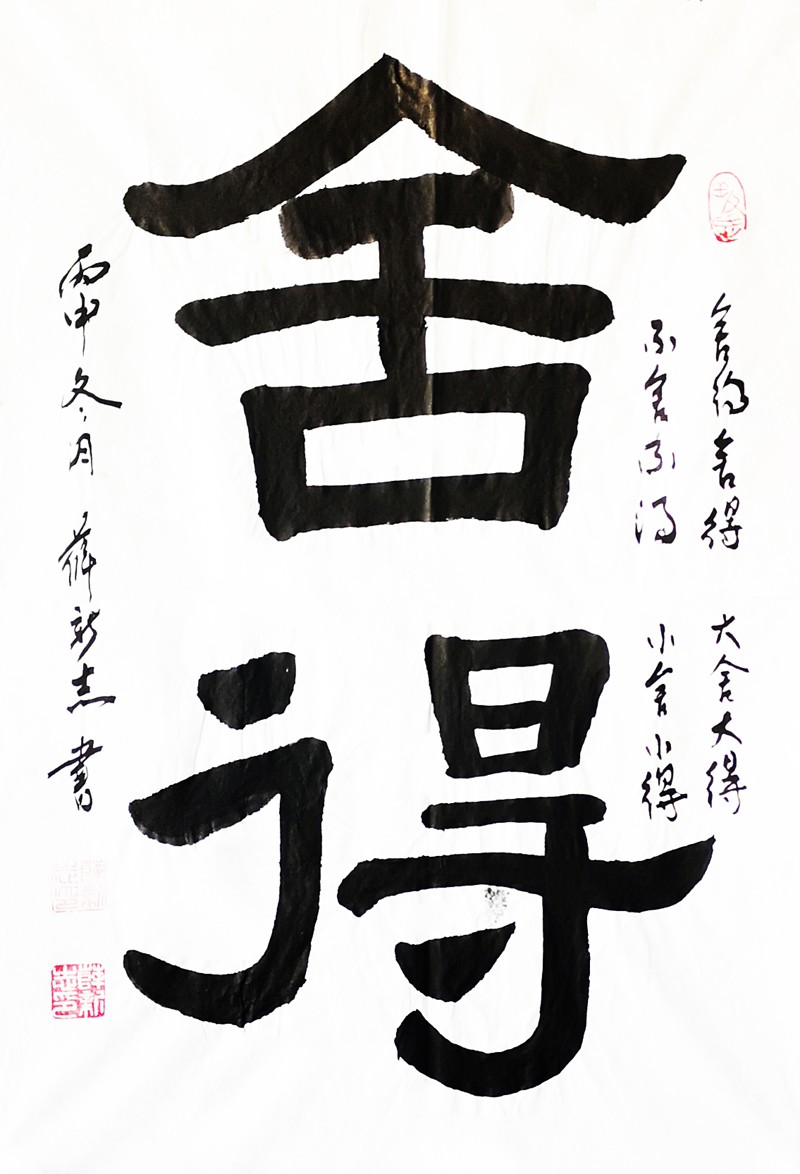 舍得
舍得舍得 大舍大得
不舍不得 小舍小得
丙申冬月 薛新志書
薛新志印